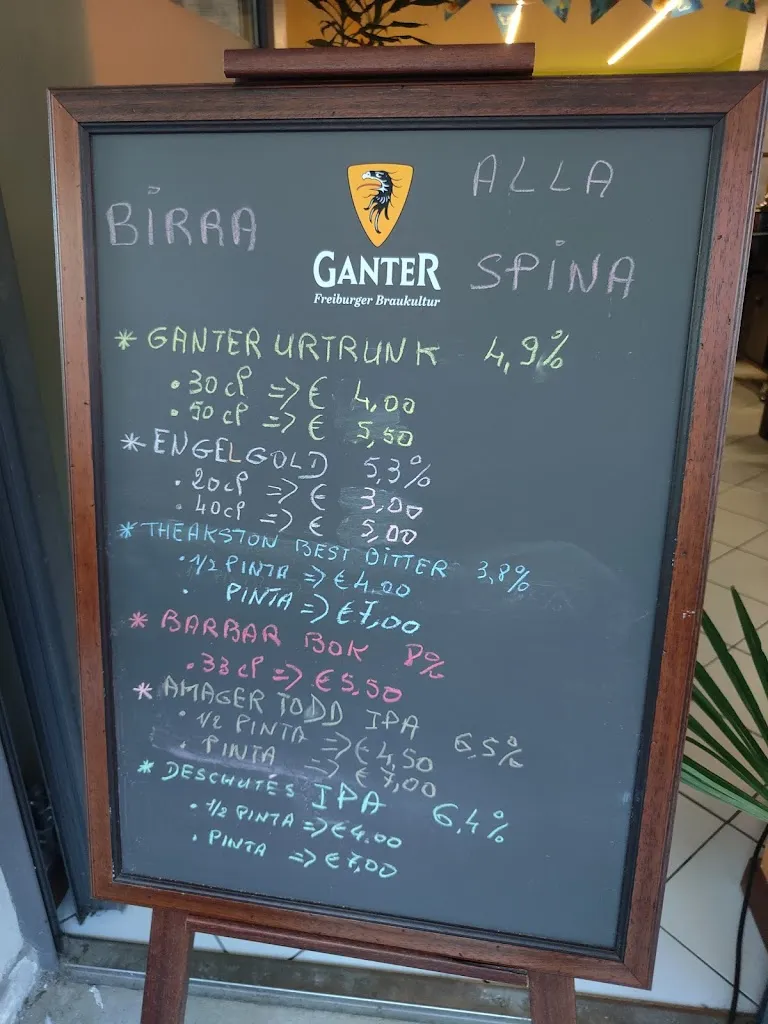 BIRRA
ALLA
SPINA
GANTER
Freiburger Braukultur
* GANTER URTRUNK 4,9%
• 30 cl => € 4,00
• 50 cl => € 5,50
* ENGELGOLD 5,3%
• 20 cl => € 3,00
• 40 cl => € 5,00
* THEAKSTON BEST BITTER 3,8%
• 1/2 PINTA => € 4.00
• PINTA => € 7,00
* BARBAR BOK 8%
• 33 cl => € 5,50
* AMAGER TODD IPA 6,5%
• 1/2 PINTA => € 4,50
• PINTA => € 7,00
* DESCHUTES IPA 6,4%
• 1/2 PINTA => € 4.00
• PINTA => € 7,00